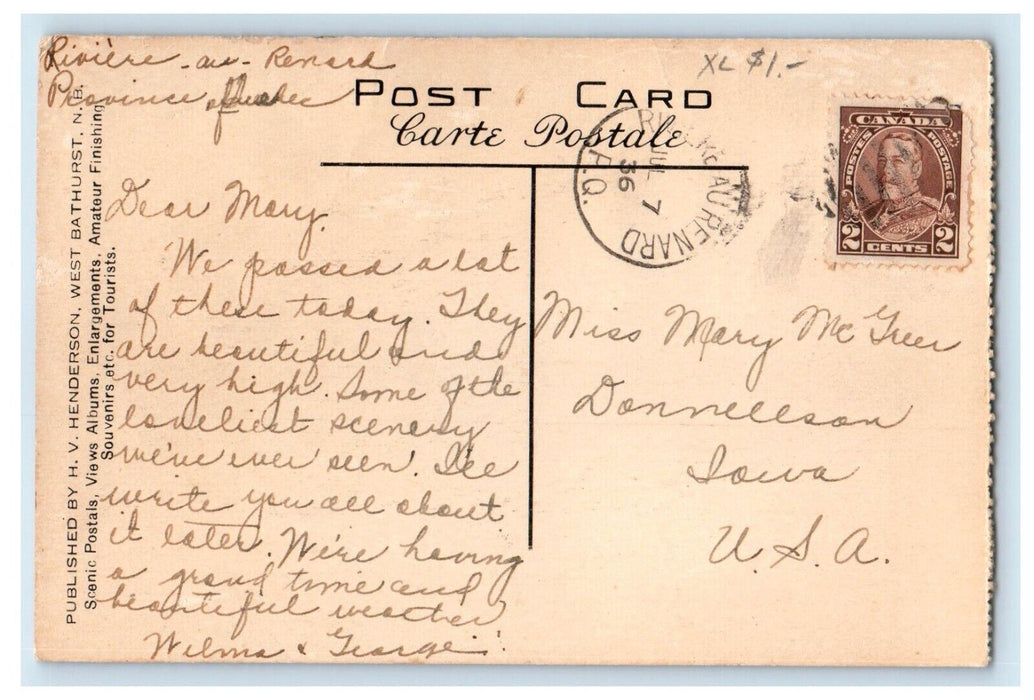 Rivière-au-Renard
Province of Quebec
XL $1.-
POST CARD
Carte Postale
RIVIERE AU RENARD
JUL 7
36
P.Q.
CANADA
POSTES POSTAGE
2 CENTS 2
PUBLISHED BY H. V. HENDERSON, WEST BATHURST, N. B.
Scenic Postals, Views Albums, Enlargements, Amateur Finishing
Souvenirs etc. for Tourists.
Dear Mary,
We passed a lot
of these today. They
are beautiful and
very high. Some of the
loveliest scenery
we've ever seen. I'll
write you all about
it later. We're having
a grand time and
beautiful weather
Wilma & George.
Miss Mary McGreer
Donnellson
Iowa
U.S.A.